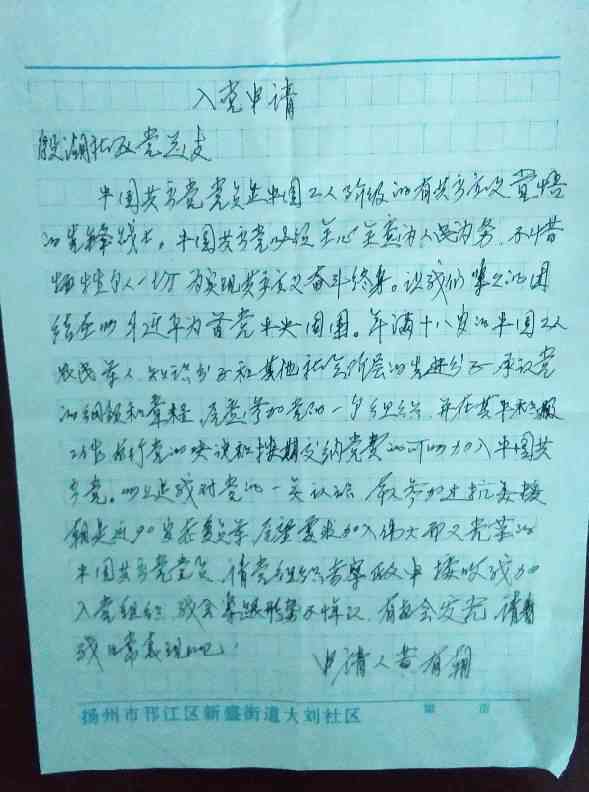 入党申请
殷湖社区党总支
中国共产党党员是中国工人阶级的有共产主义觉悟
的先锋战士。中国共产党必须全心全意为人民服务，不惜
牺牲个人一切 为实现共产主义奋斗终身。让我们紧紧的团
结在以习近平为首党中央周围。年满十八岁的中国工人
农民军人 知识分子和其他社会阶层的先进分子 承认党
的纲领和章程，愿意参加党的一个组织 并在其中积极
工作 执行党的决议和按期交纳党费的可以加入中国共
产党。以上是我对党的一点认识 参加过抗美援
朝 要求加入伟大而又光荣的
中国共产党党员 请党组织考察 接收我加
入党组织 我会 请看
我日常表现吧！
申请人黄有朝
扬州市邗江区新盛街道大刘社区
第 页